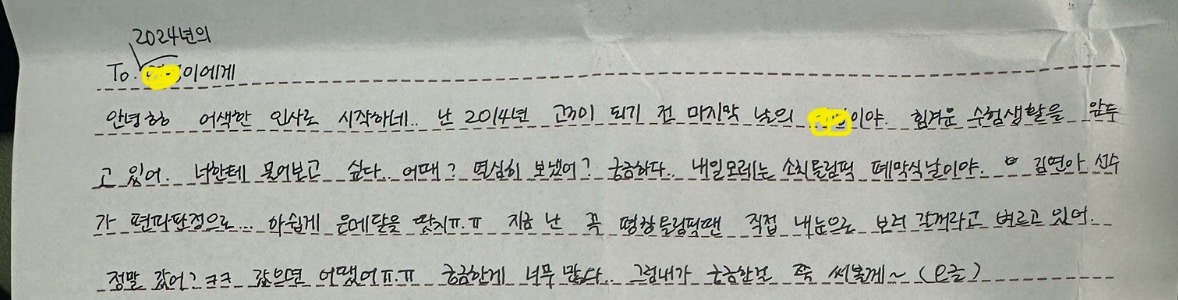 2024년의
To. 이에게
안녕ㅎㅎ 어색한 인사로 시작하네.. 난 2014년 고3이 되기 전 마지막 날의 이야. 힘겨운 수험생활을 앞두
고 있어. 너한테 물어보고 싶다.. 어때? 열심히 보냈어? 궁금하다.. 내일모레는 소치올림픽 폐막식날이야. 김연아 선수
가 편파판정으로... 아쉽게 은메달을 땄지ㅠ.ㅠ 지금 난 꼭 평창올림픽땐 직접 내눈으로 보러 갈꺼라고 벼르고 있어.
정말 갔어? ㅋㅋ 갔으면 어땠어ㅠ.ㅠ 궁금한게 너무 많다.. 그럼내가 궁금한걸 쭉 써볼게~ (오글)